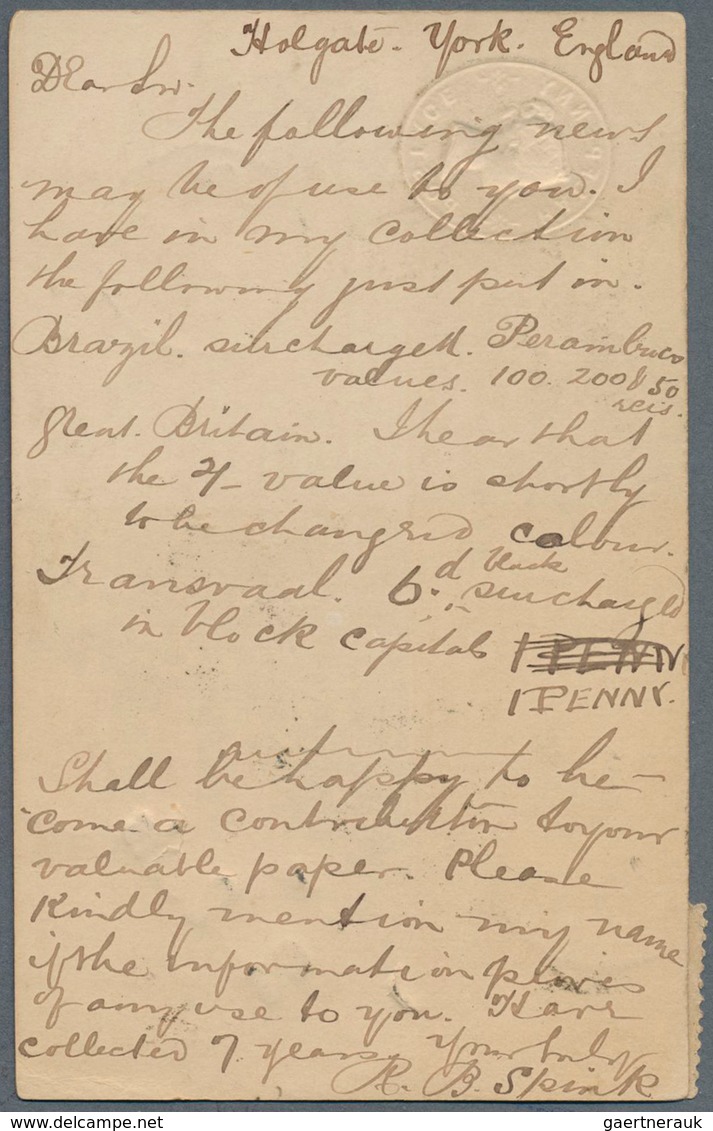 Holgate. York. England
Dear Sir.
The following news
may be of use to you. I
have in my collection
the following just put in.
Brazil. surcharged. Perambuco
values. 100. 200 & 50
reis.
Great. Britain. I hear that
the 4- value is shortly
to be changed colour.
Transvaal. 6.d black surcharged
in block capitals 1 PENNY
1 PENNY.
Shall be happy to be-
come a contributor to your
valuable paper. Please
Kindly mention my name
if the information proves
of any use to you. Have
collected 7 years. Yours truly
R. B. Spink
gaertnerauk